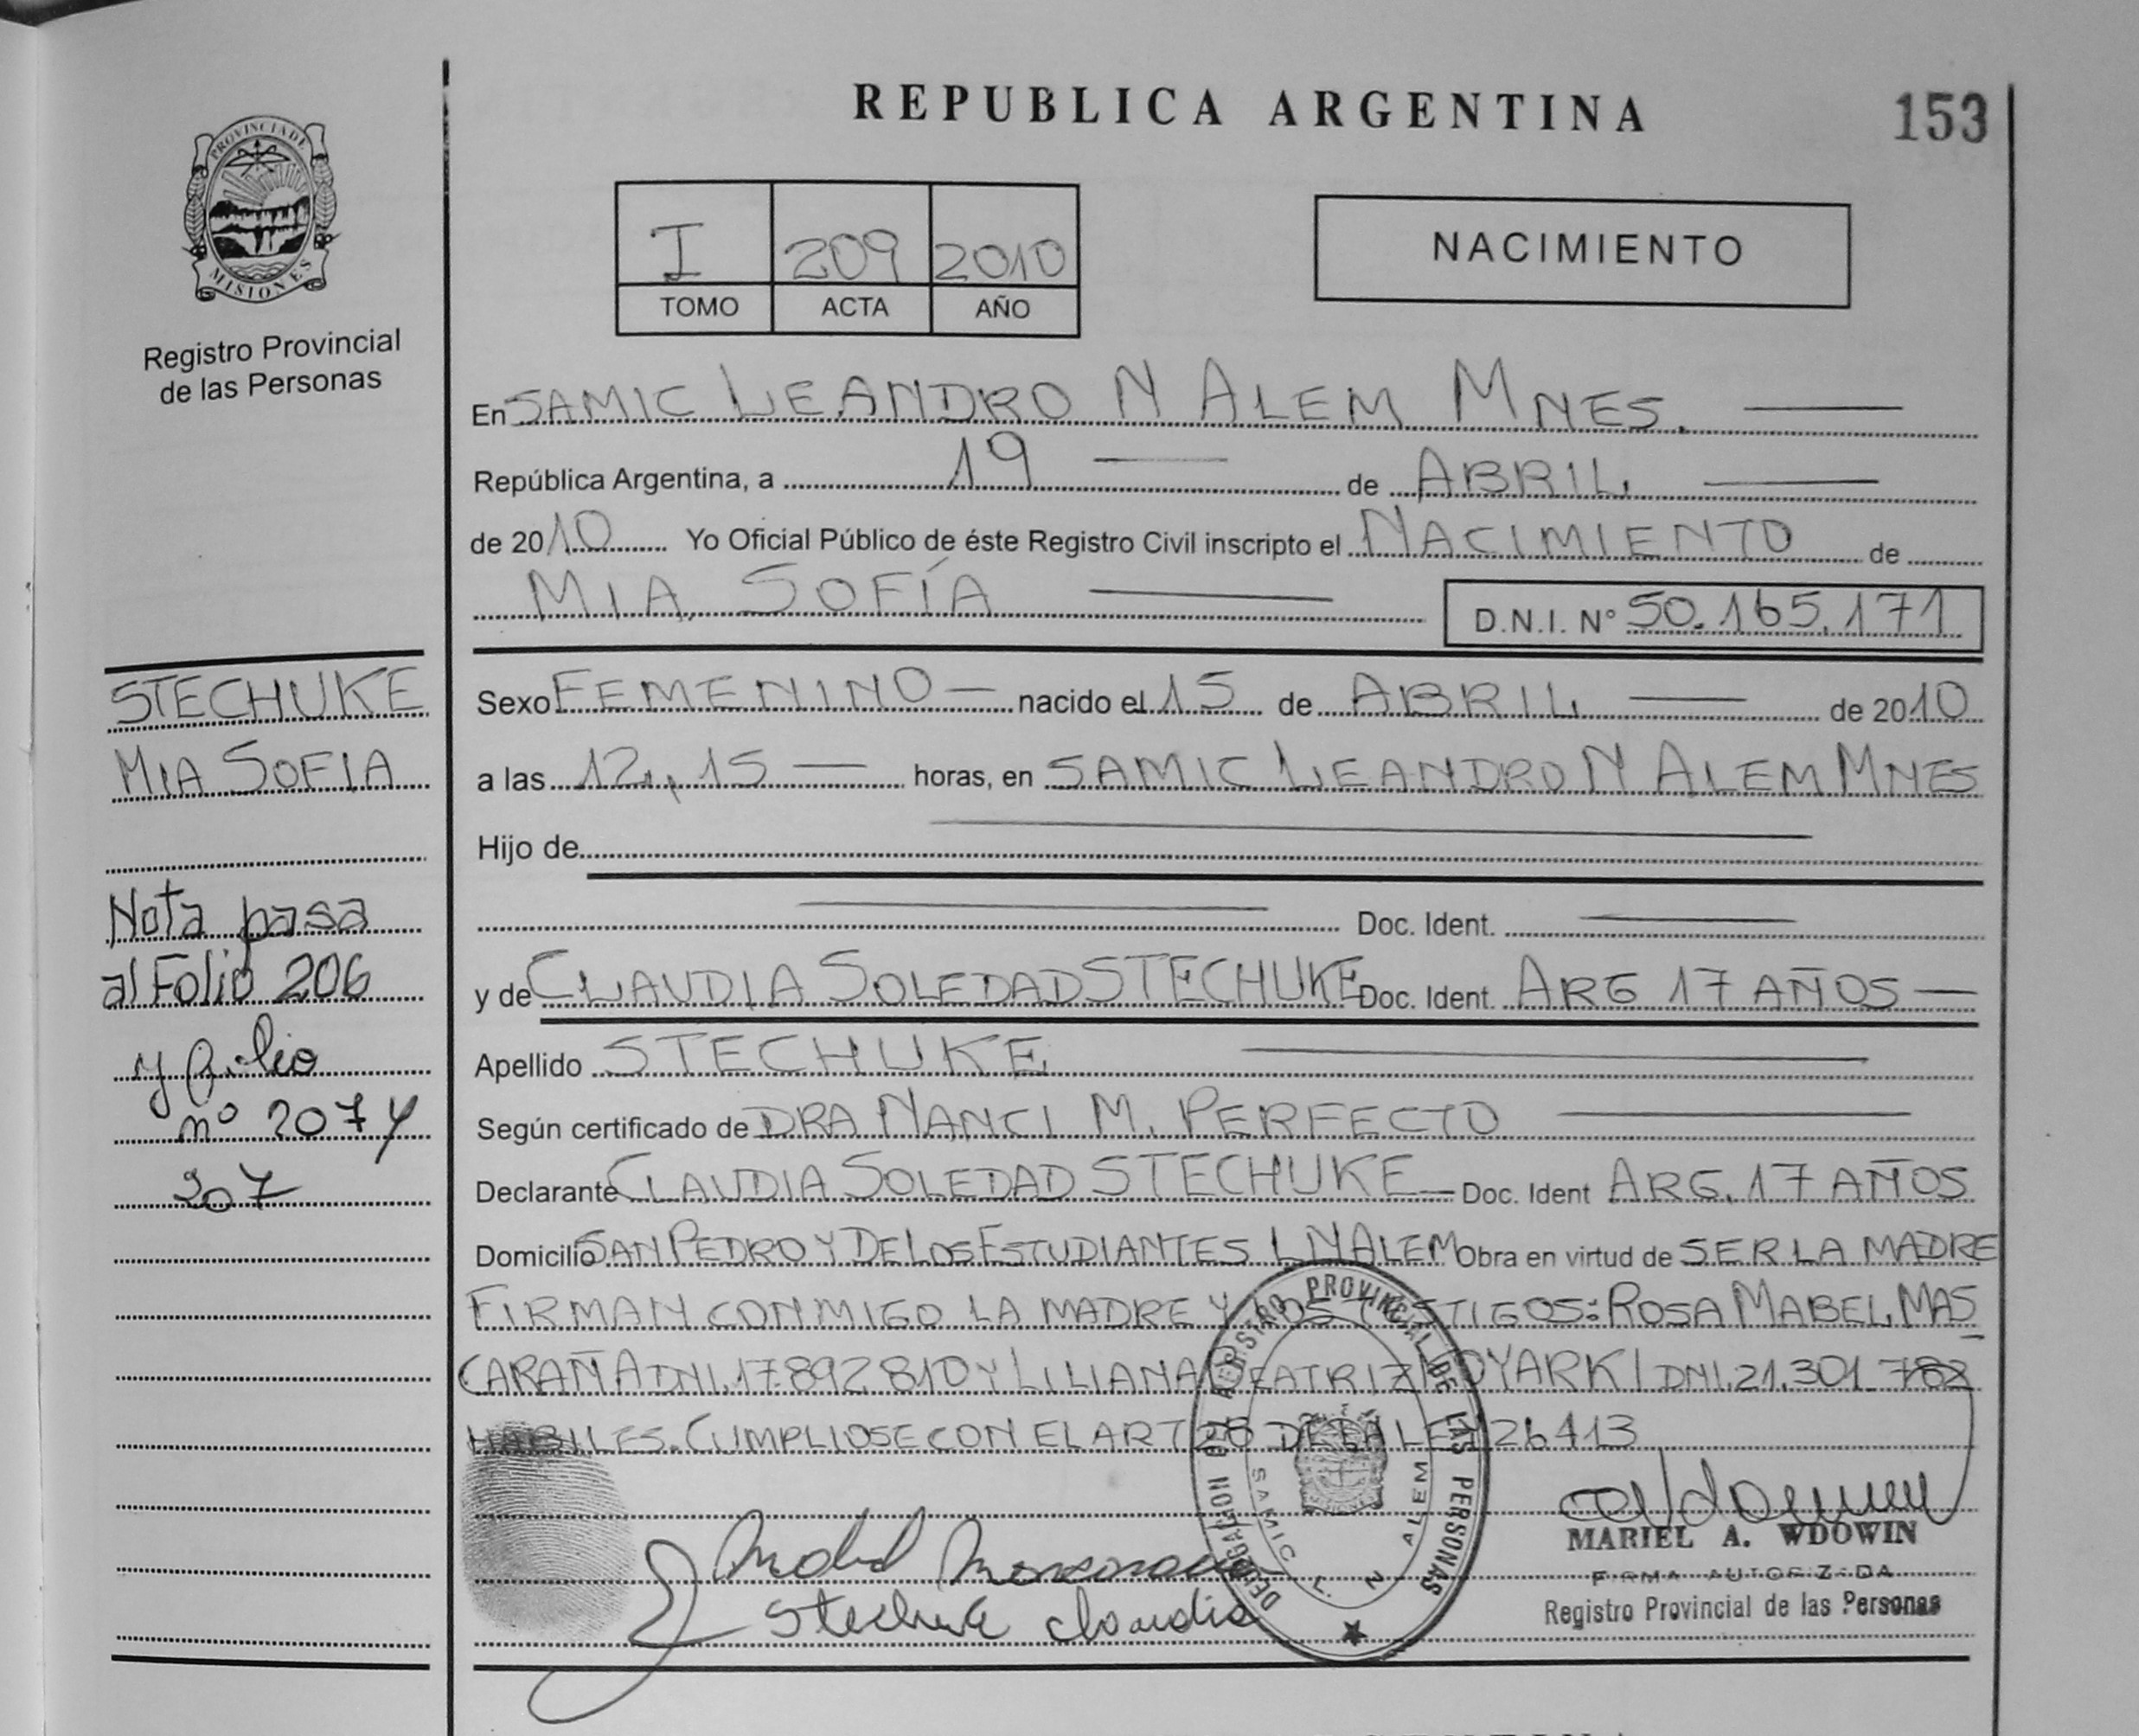 REPUBLICA ARGENTINA
153
PROVINCIA DE
MISIONES
Registro Provincial
de las Personas
I 209 2010
TOMO ACTA AÑO
NACIMIENTO
En SAMIC LEANDRO N ALEM MNES.
República Argentina, a 19 de ABRIL
de 2010 Yo Oficial Público de éste Registro Civil inscripto el NACIMIENTO de
MIA SOFÍA D.N.I. N° 50.165.171
STECHUKE
MIA SOFIA
Nota pasa
al Folio 206
y folio
nº 207 y
207
Sexo FEMENINO nacido el 15 de ABRIL de 2010
a las 12,,15 horas, en SAMIC LEANDRO N ALEM MNES
Hijo de
Doc. Ident.
y de CLAUDIA SOLEDAD STECHUKE Doc. Ident. ARG 17 AÑOS
Apellido STECHUKE
Según certificado de DRA NANCI M. PERFECTO
Declarante CLAUDIA SOLEDAD STECHUKE Doc. Ident ARG. 17 AÑOS
Domicilio SAN PEDRO Y DE LOS ESTUDIANTES L N ALEM Obra en virtud de SER LA MADRE
FIRMAN CONMIGO LA MADRE Y LOS TESTIGOS: ROSA MABEL MAS
CARAÑA DNI.17.892.810 Y LILIANA BEATRIZ DNI.21.301.782
HABILES. CUMPLIOSE CON EL ART 28 DE LA LEY 26413
DELEGACION DEL REGISTRO PROVINCIAL DE LAS PERSONAS
SAMIC L. N ALEM
Stechuke Claudia
MARIEL A. WDOWIN
FIRMA AUTORIZADA
Registro Provincial de las Personas